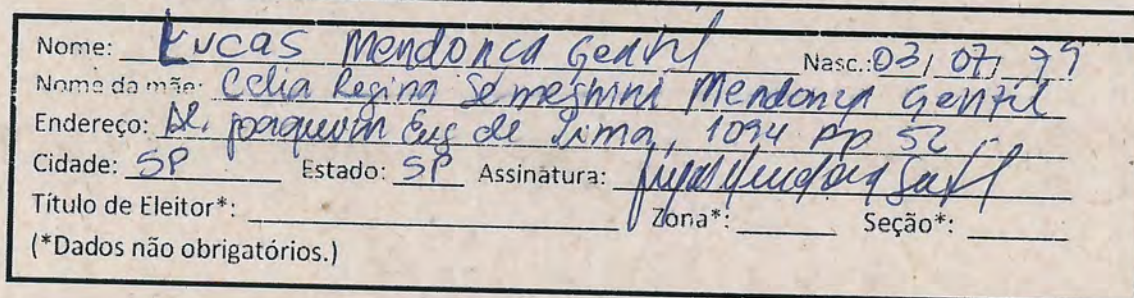 Nome: Lucas Mendonca Gentil Nasc.: 03/07/79
Nome da mãe: Celia Regina Semeghini Mendonça Gentil
Endereço: Al. Joaquim Eug de Lima, 1094 ap 52
Cidade: SP Estado: SP Assinatura: Lucas Mendonca Gentil
Título de Eleitor*: Zona*: Seção*:
(*Dados não obrigatórios.)